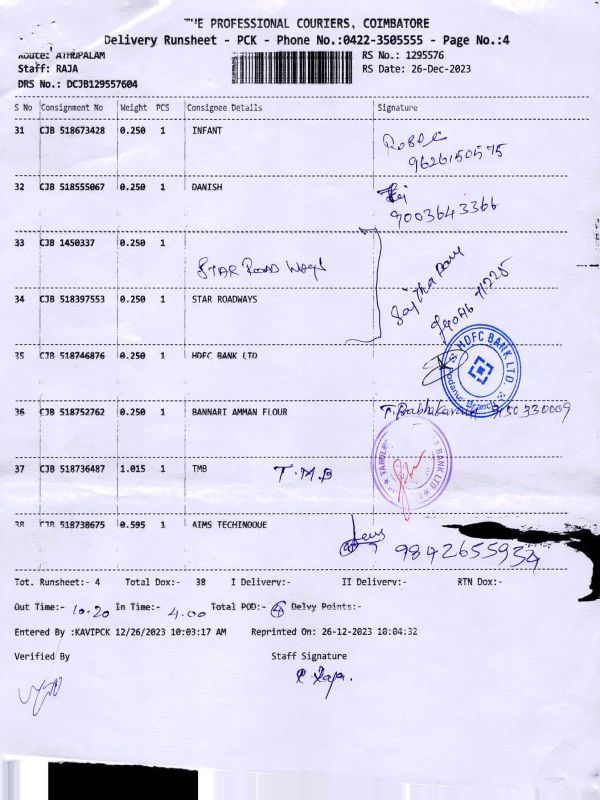 THE PROFESSIONAL COURIERS, COIMBATORE
Delivery Runsheet - PCK - Phone No.:0422-3505555 - Page No.:4
Route: ATHUPALAM
RS No.: 1295576
Staff: RAJA
RS Date: 26-Dec-2023
DRS No.: DCJB129557604
S No Consignment No Weight PCS Consignee Details Signature
31 CJB 518673428 0.250 1 INFANT
9626150575
32 CJB 518555067 0.250 1 DANISH
9003643366
33 CJB 1450337 0.250 1
STAR ROAD Ways
34 CJB 518397553 0.250 1 STAR ROADWAYS
35 CJB 518746876 0.250 1 HDFC BANK LTD
HDFC BANK LTD.
Branch
36 CJB 518752762 0.250 1 BANNARI AMMAN FLOUR
BANK LTD
37 CJB 518736487 1.015 1 TMB T.M.B
38 CJB 518738675 0.595 1 AIMS TECHINOQUE
9842655934
Tot. Runsheet:- 4 Total Dox:- 38 I Delivery:- II Delivery:- RTN Dox:-
Out Time:- 10.20 In Time:- 4.00 Total POD:- Delvy Points:-
Entered By :KAVIPCK 12/26/2023 10:03:17 AM Reprinted On: 26-12-2023 10:04:32
Verified By Staff Signature
R. Raja.